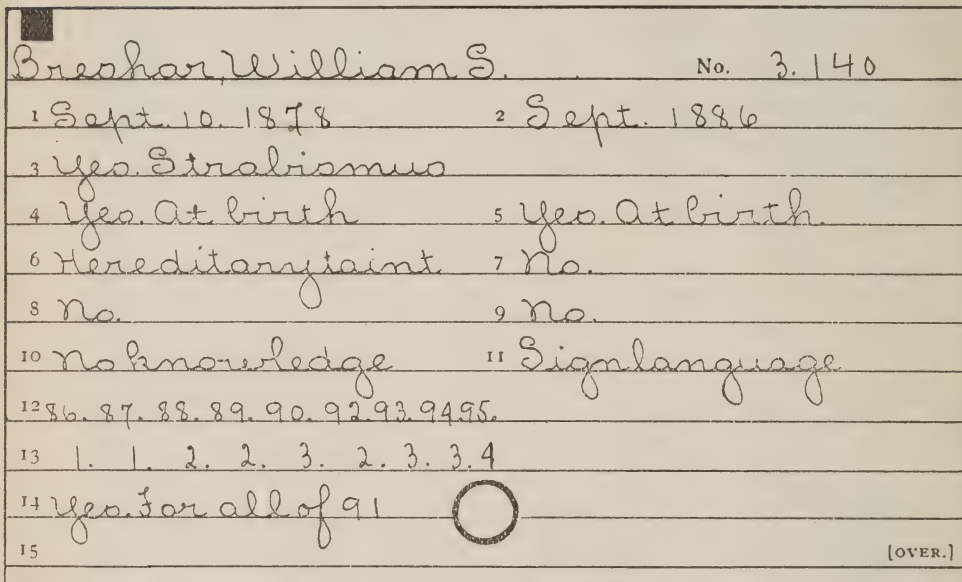 Breohar, William S. No. 3.140
1 Sept. 10. 1878 2 Sept. 1886
3 Yes. Strabismus
4 Yes. At birth 5 Yes. At birth.
6 Hereditary taint 7 No.
8 No. 9 No.
10 No knowledge 11 Sign language
12 86. 87. 88. 89. 90. 92. 93. 94. 95.
13 1. 1. 2. 2. 3. 2. 3. 3. 4
14 Yes. For all of 91
15 [OVER.]